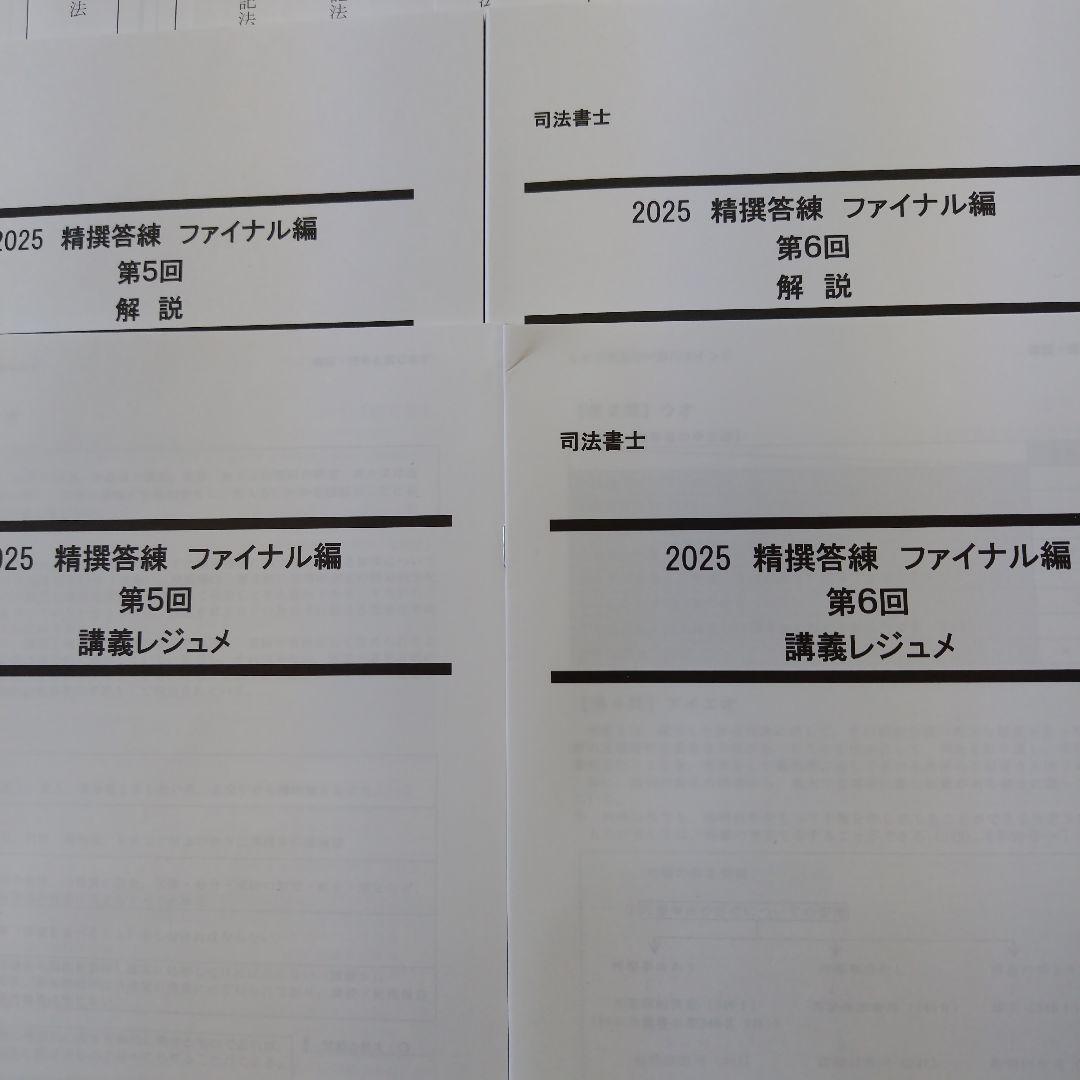 法
記法
法
2025 精撰答練 ファイナル編
第5回
解 説
司法書士
2025 精撰答練 ファイナル編
第6回
解 説
025 精撰答練 ファイナル編
第5回
講義レジュメ
司法書士
2025 精撰答練 ファイナル編
第6回
講義レジュメ